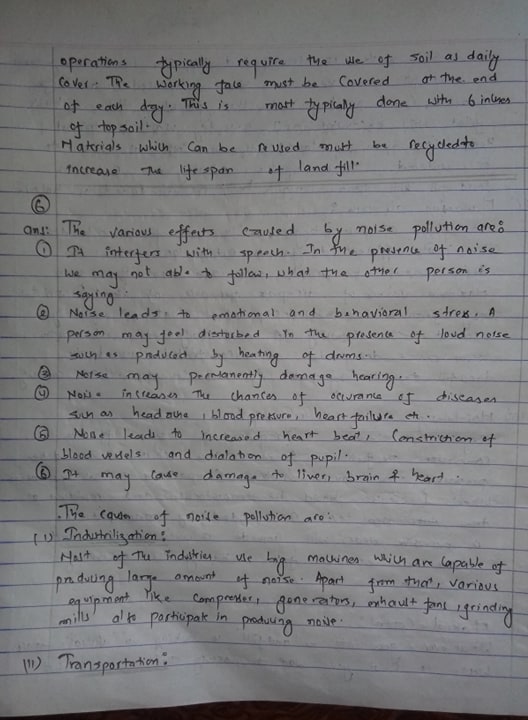 operations typically require the use of soil as daily
cover. The working face must be covered at the end
of each day. This is most typically done with 6 inches
of topsoil.
Materials which can be reused must be recycled to
increase the life span of land fill.
⑥
ans: The various effects caused by noise pollution are:
① It interfers with speech. In the presence of noise
we may not able to follow, what the other person is
saying.
② Noise leads to emotional and behavioral stress. A
person may feel distorbed in the presence of loud noise
such as produced by heating of drums.
③ Noise may permanently damage hearing.
④ Noise increases the chances of occurance of diseases
such as headache, blood pressure, heart failure etc.
⑤ Noise leads to increased heart beat, constriction of
blood vessels and dialation of pupil.
⑥ It may cause damage to liver, brain & heart.
The causes of noise pollution are:
(i) Industrilization:
Most of the industries use big machines which are capable of
producing large amount of noise. Apart from that, various
equipment like compresser, generators, exhault fans, grinding
mills also participate in producing noise.
(ii) Transportation: